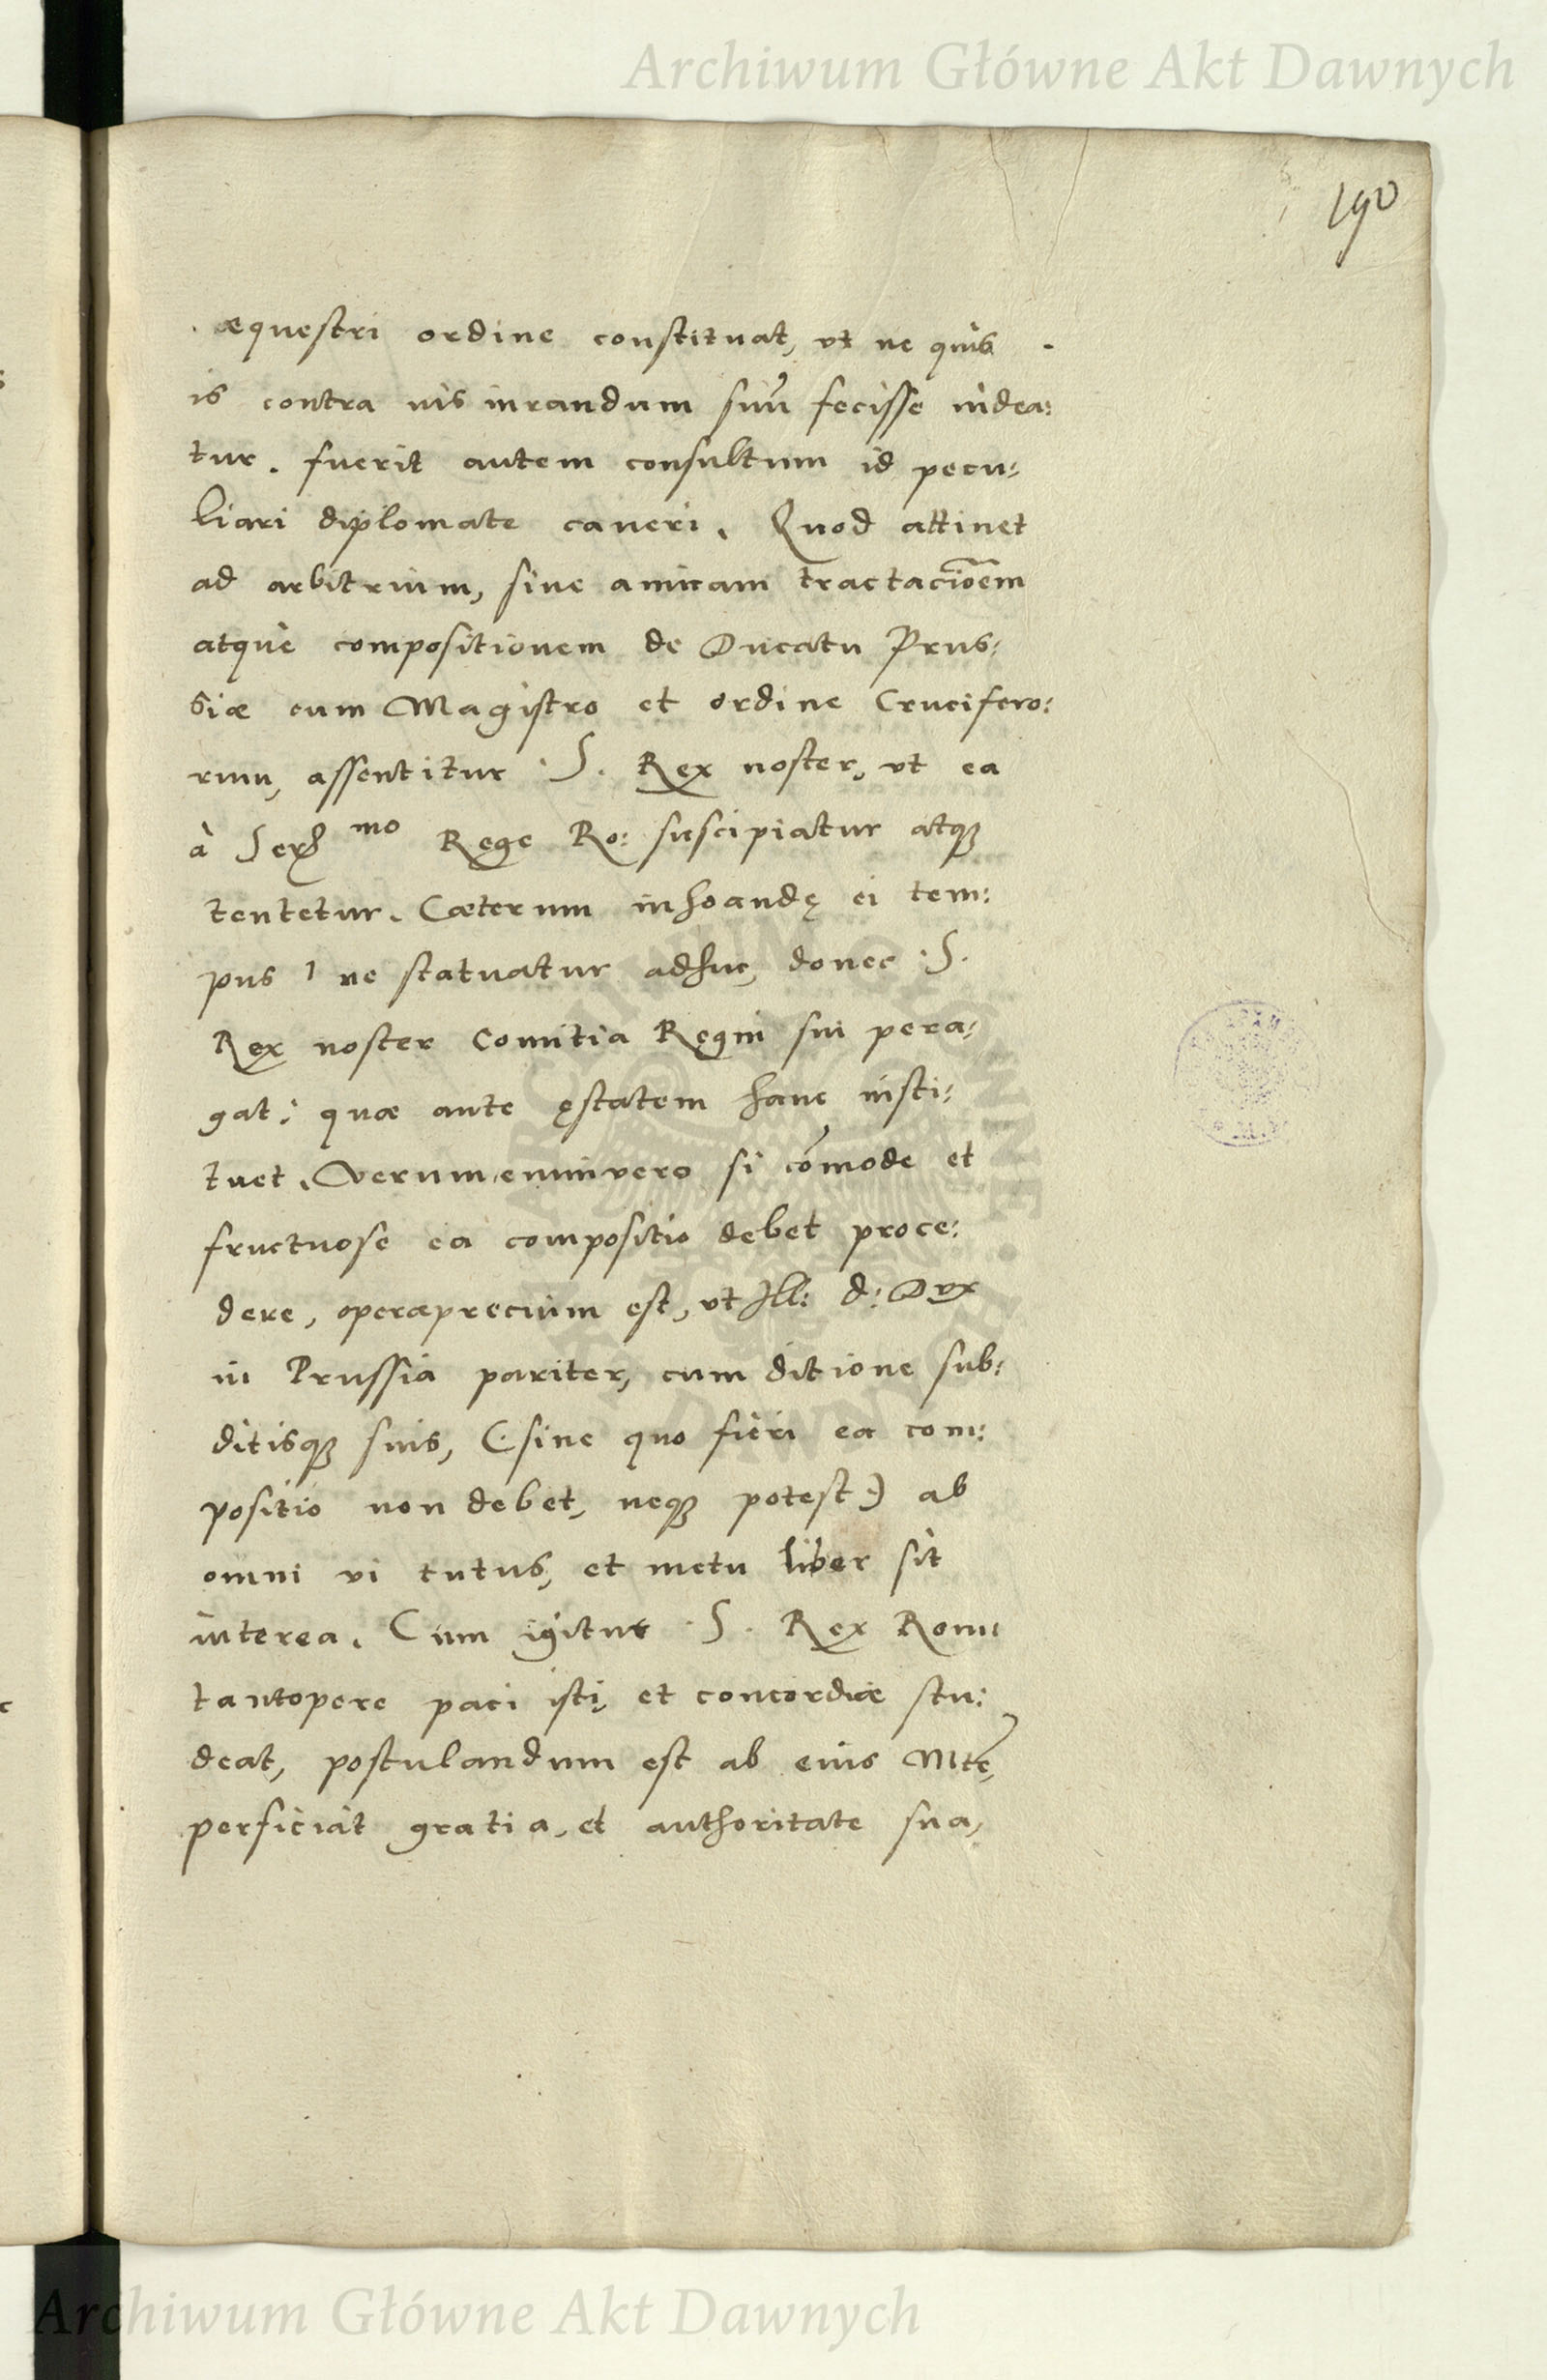 Archiwum Główne Akt Dawnych
190
æquestri ordine constituat, ut ne quis
is contra iusiurandum suũ fecisse uidea:
tur. fuerit autem consultum id pecu:
liari diplomate caueri. Quod attinet
ad arbitrium, siue amicam tractaciõem
atque compositionem de Ducatu Prus:
siæ cum Magistro et ordine Crucifero:
rum, assentitur .S. Rex noster, ut ea
à Ser mo Rege Ro: suscipiatur atq3
tentetur. Cæterum inhoandę ei tem:
pus ne statuatur adhuc, donec .S.
Rex noster Comitia Regni sui pera:
gat: quæ ante ęstatem hanc insti:
tuet. Verumenimvero si cõmode et
fructuose ea compositio debet proce:
dere, operæprecium est, ut Ill: d: Dux
in Prussia pariter, cum ditione sub:
ditisq3 suis, (:sine quo fieri ea com:
positio non debet, neq3 potest:) ab
omni vi tutus, et metu liber sit
interea. Cum igitur .S. Rex Rom:
tantopere paci isti, et concordiæ stu:
deat, postulandum est ab eius Mte,
perficiat gratia, et authoritate sua,
Archiwum Główne Akt Dawnych